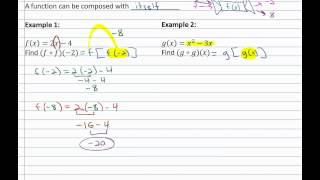 A function can be composed with itself
[ f(x) ]
-8
Example 1:
f(x) = 2x - 4
Find (f ∘ f)(-2) = f[ f(-2) ]
f(-2) = 2(-2) - 4
-4 - 4
-8
f(-8) = 2(-8) - 4
-16 - 4
-20
Example 2:
g(x) = x² - 3x
Find (g ∘ g)(x) = g[ g(x) ]